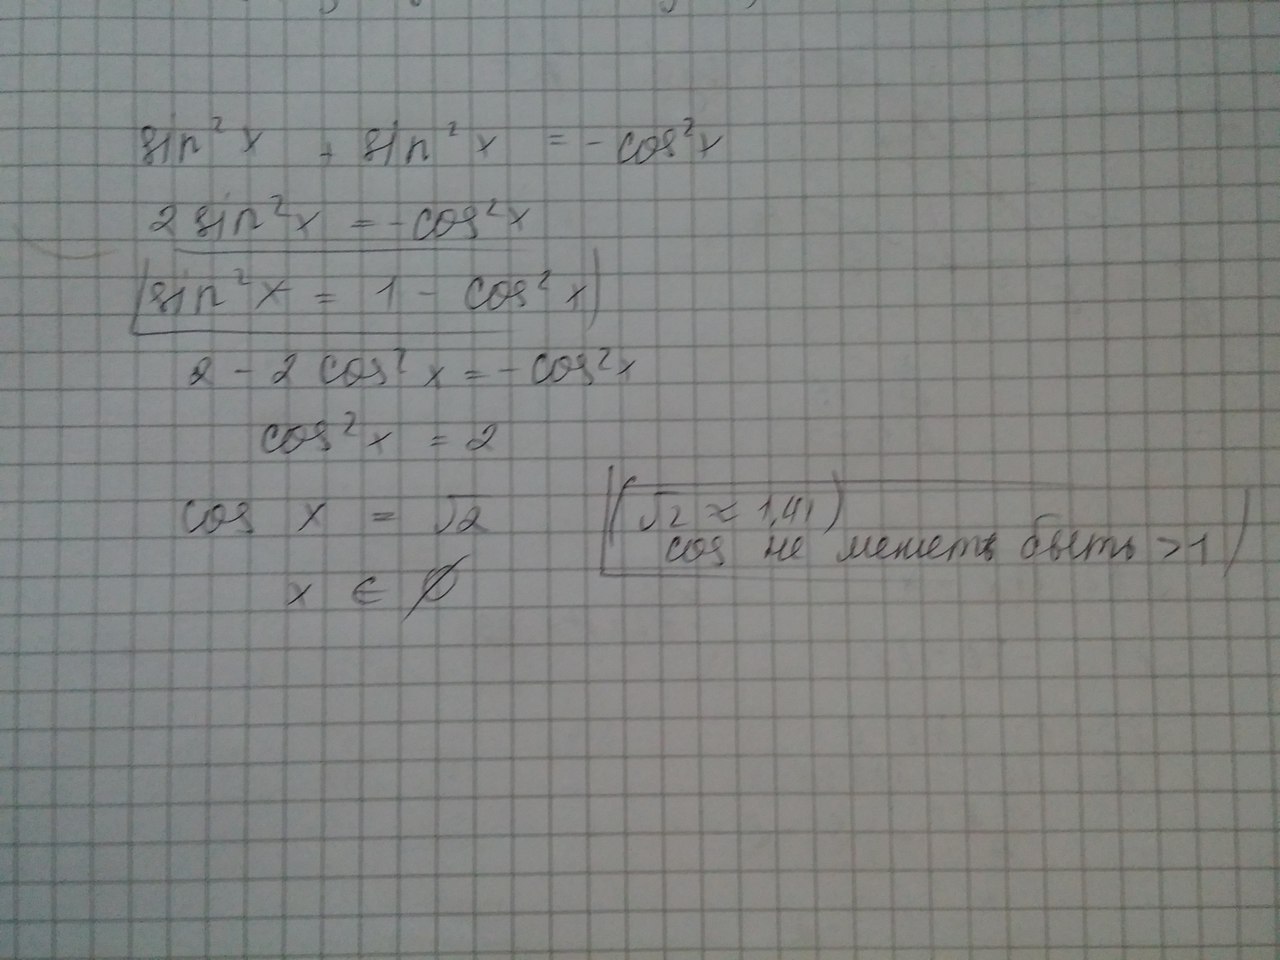 sin²x + sin²x = -cos²x
2 sin²x = -cos²x
(sin²x = 1 - cos²x)
2 - 2 cos²x = -cos²x
cos²x = 2
cos x = √2
(√2 ≈ 1,41)
cos не может быть > 1)
x ∈ ∅